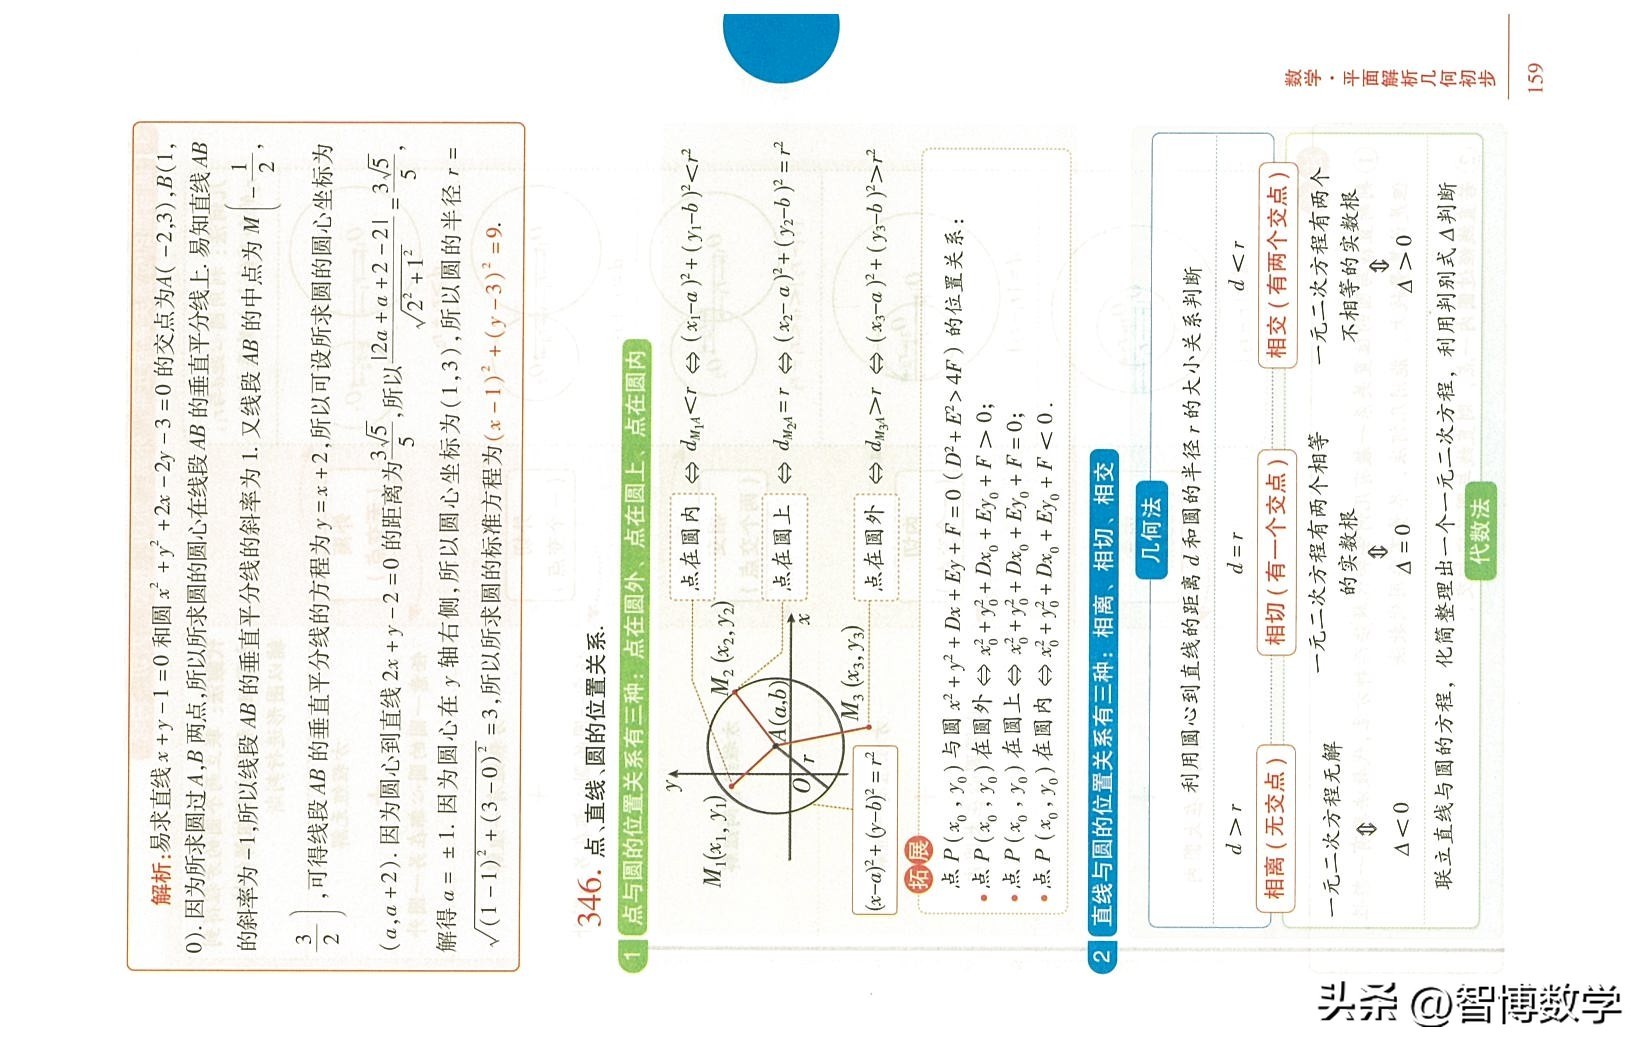 解析:易求直线x+y-1=0和圆x²+y²+2x-2y-3=0的交点为A(-2,3),B(1,
0).因为所求圆过A,B两点,所以所求圆的圆心在线段AB的垂直平分线上.易知直线AB
的斜率为-1,所以线段AB的垂直平分线的斜率为1.又线段AB的中点为M(-1/2,
3/2),可得线段AB的垂直平分线的方程为y=x+2,所以可设所求圆的圆心坐标为
(a,a+2).因为圆心到直线2x+y-2=0的距离为3√5/5,所以|2a+a+2-2|/√(2²+1²)=3√5/5,
解得a=±1.因为圆心在y轴右侧,所以圆心坐标为(1,3),所以圆的半径r=
√((1-1)²+(3-0)²)=3,所以所求圆的标准方程为(x-1)²+(y-3)²=9.
346.点、直线、圆的位置关系.
1 点与圆的位置关系有三种：点在圆外、点在圆上、点在圆内
y
x
O
r
A(a,b)
M₁(x₁,y₁)
M₂(x₂,y₂)
M₃(x₃,y₃)
(x-a)²+(y-b)²=r²
点在圆内 ⇔ d_M₁A<r ⇔ (x₁-a)²+(y₁-b)²<r²
点在圆上 ⇔ d_M₂A=r ⇔ (x₂-a)²+(y₂-b)²=r²
点在圆外 ⇔ d_M₃A>r ⇔ (x₃-a)²+(y₃-b)²>r²
拓展
点P(x₀,y₀)与圆x²+y²+Dx+Ey+F=0(D²+E²>4F)的位置关系：
•点P(x₀,y₀)在圆外⇔x₀²+y₀²+Dx₀+Ey₀+F>0;
•点P(x₀,y₀)在圆上⇔x₀²+y₀²+Dx₀+Ey₀+F=0;
•点P(x₀,y₀)在圆内⇔x₀²+y₀²+Dx₀+Ey₀+F<0.
2 直线与圆的位置关系有三种：相离、相切、相交
几何法
利用圆心到直线的距离d和圆的半径r的大小关系判断
d>r d=r d<r
相离(无交点) 相切(有一个交点) 相交(有两个交点)
一元二次方程无解 一元二次方程有两个相等 一元二次方程有两个
的实数根 不相等的实数根
⇕ ⇕ ⇕
Δ<0 Δ=0 Δ>0
联立直线与圆的方程，化简整理出一个一元二次方程，利用判别式Δ判断
代数法
数学·平面解析几何初步
159
头条 @智博数学